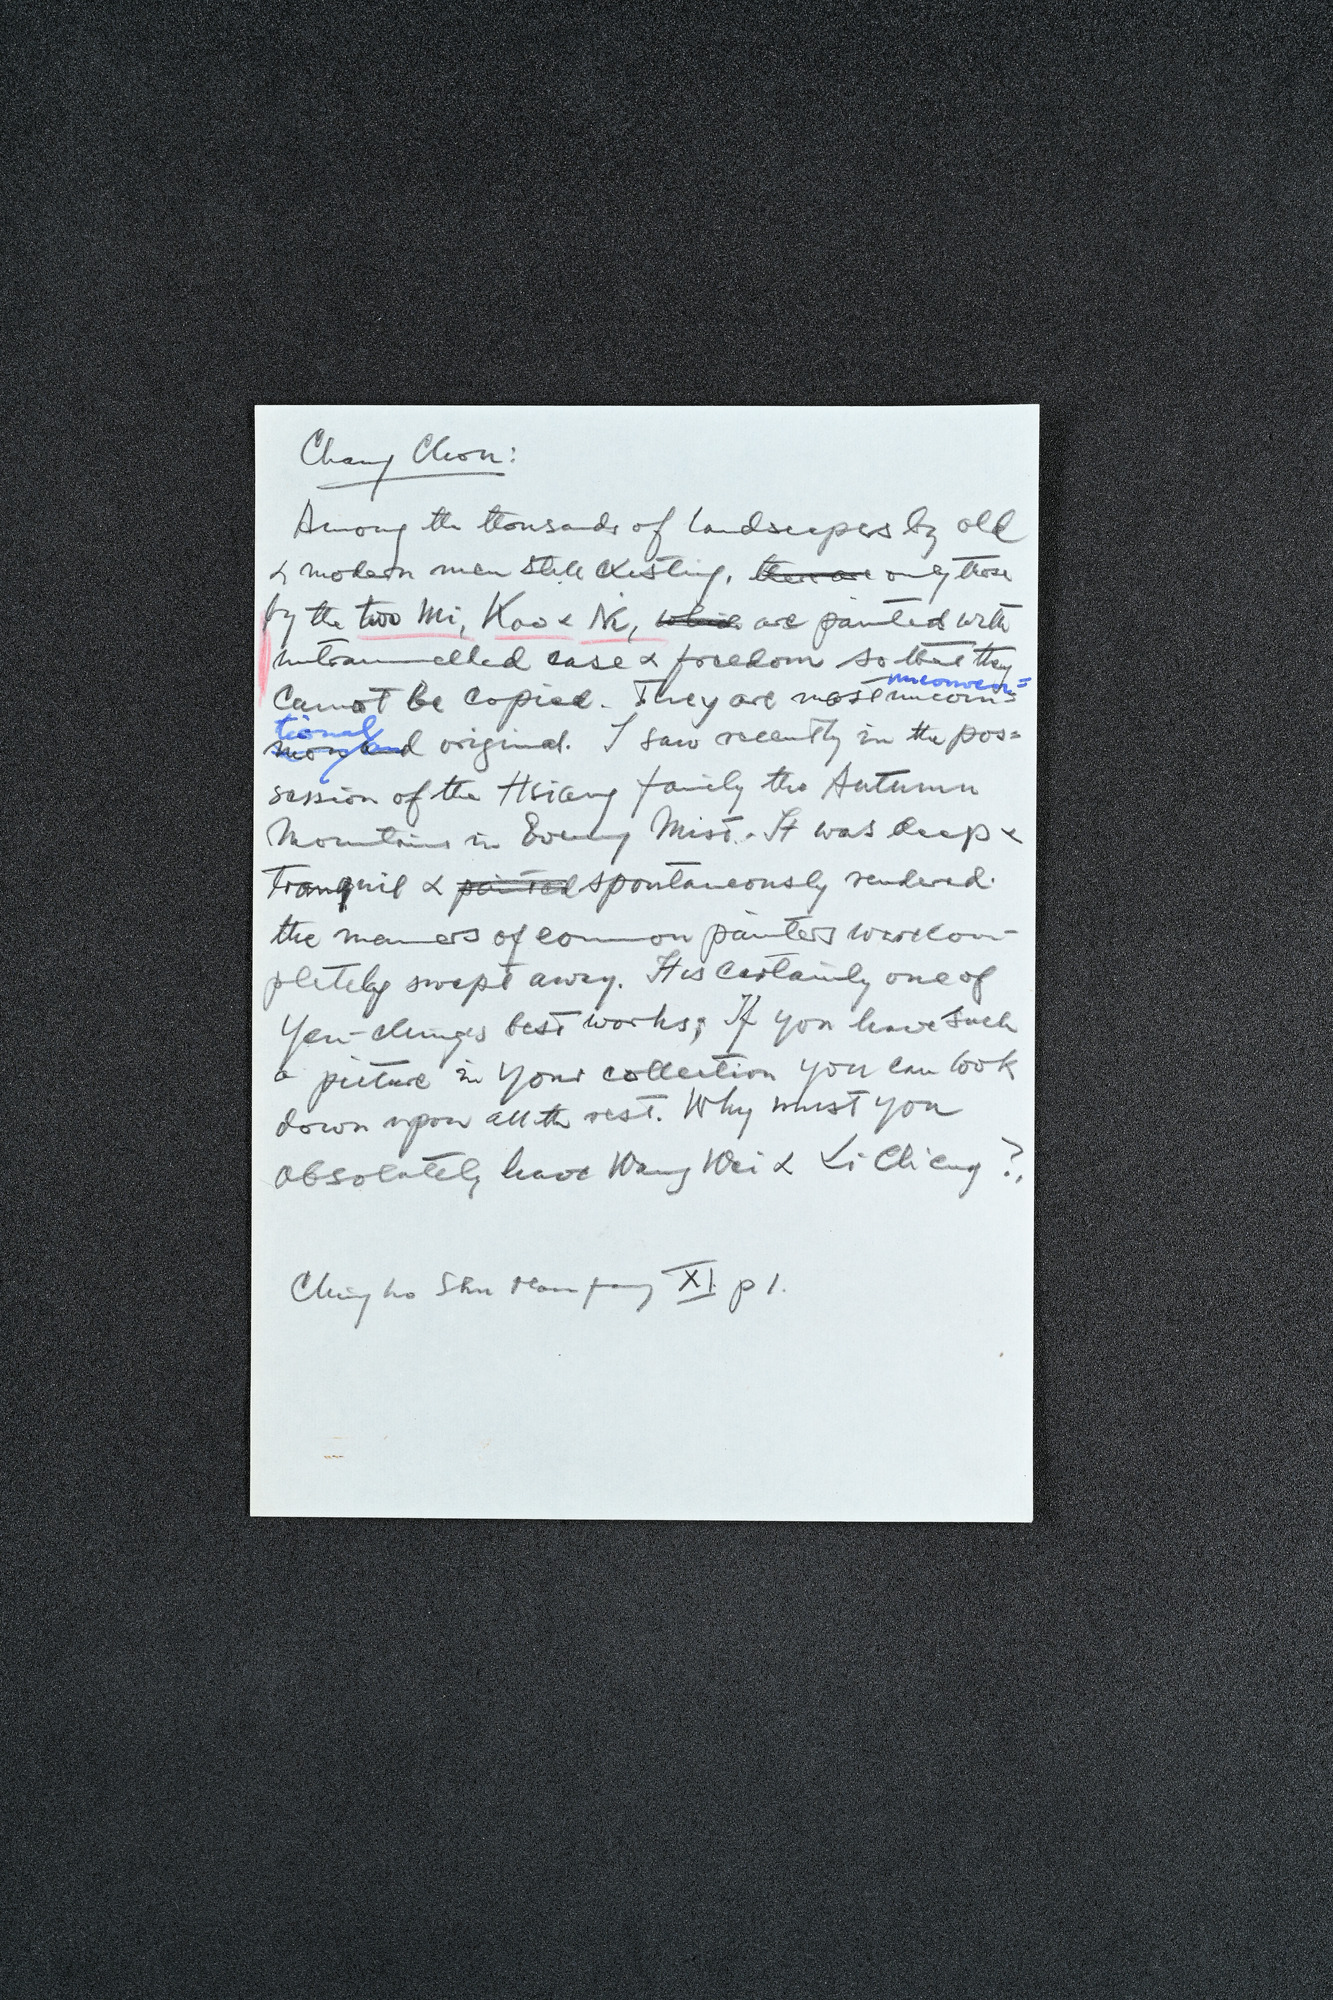 Chang Chou:
Among the thousands of landscapes by old
& modern men still existing, there are only those
by the two Mi, Kao & Ni, which are painted with
untrammelled ease & freedom so that they
cannot be copied. They are most uncom=
unconven=
tional
mon and original. I saw recently in the pos=
session of the Hsiang family the Autumn
Mountains in Evening Mist. It was deep &
tranquil & painted spontaneously rendered.
the manners of common painters were com-
pletely swept away. It is certainly one of
Yen-ching's best works; If you have such
a picture in your collection you can look
down upon all the rest. Why must you
absolutely have Wang Wei & Li Ch'eng?
Ching ho Shu Hua fang XI p 1.